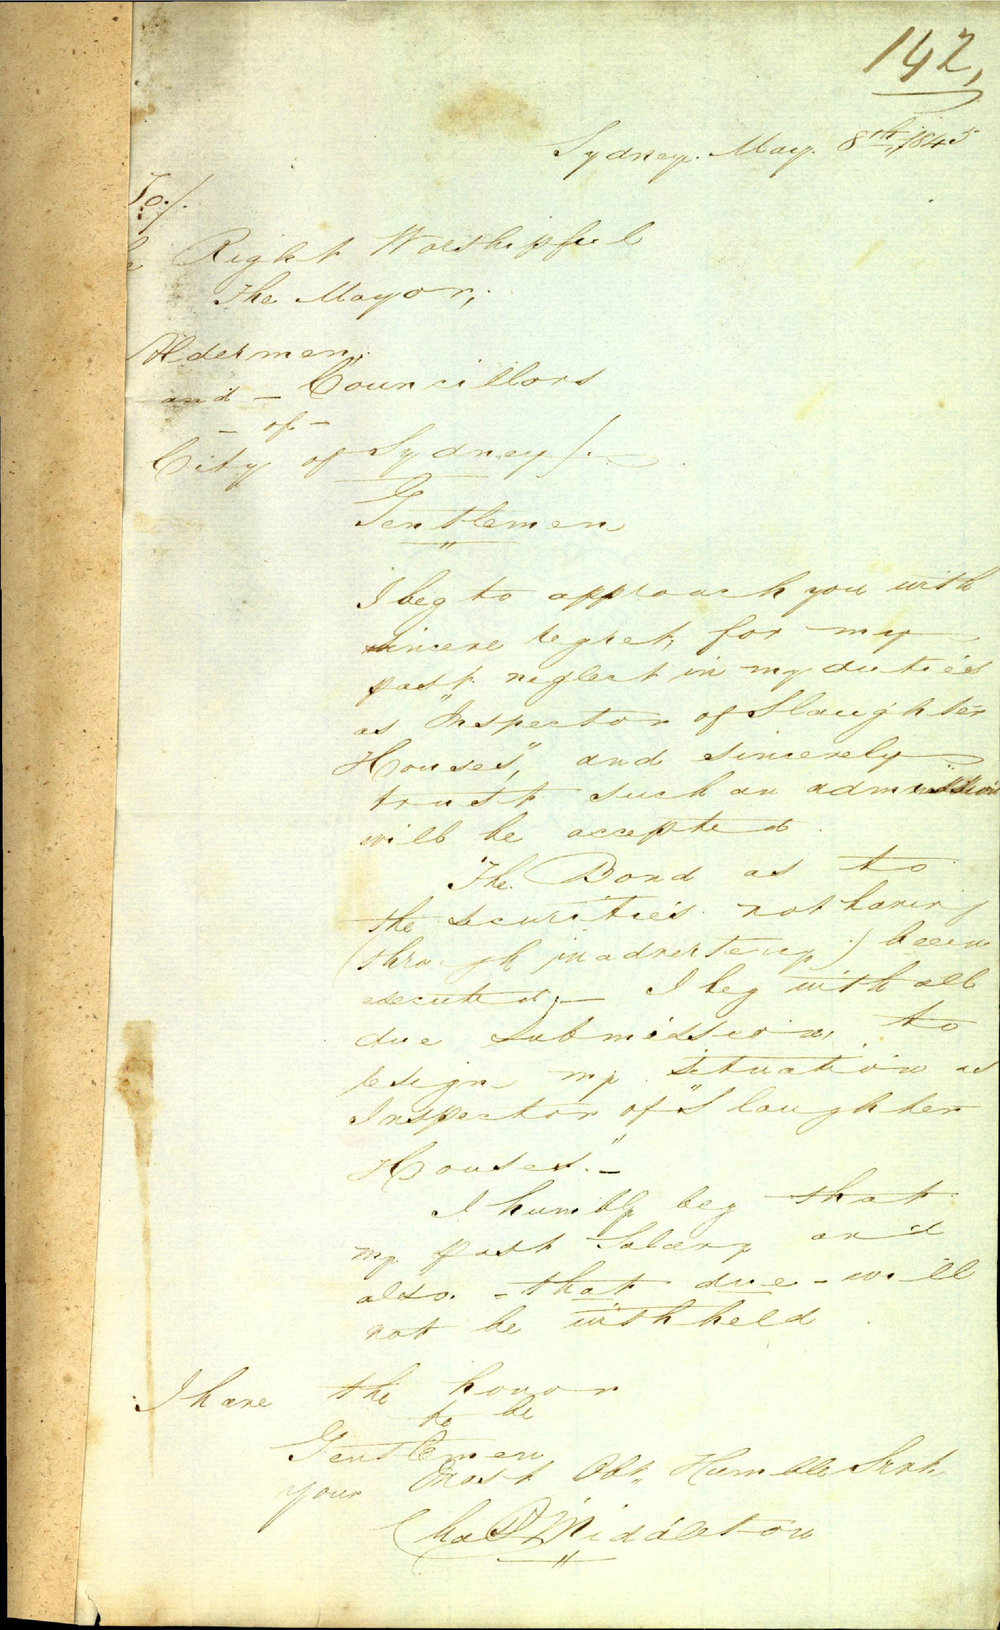 142,
Sydney. May. 8th, 1845
To/.
Right Worshipful
The Mayor,
Aldermen,
and - Councillors
- of -
City of Sydney/.
Gentlemen
I beg to approach you with
sincere regret, for my
past neglect in my duties
as "Inspector of Slaughter
Houses", and sincerely
trust such an admission
will be accepted.
The Bond as to
the securities not having
(through inadvertency) been
executed; - I beg with all
due submission, to
resign my situation as
Inspector of "Slaughter
Houses." -
I humbly beg that
my past Salary and
also - that due - will
not be withheld.
I have the honor
to be
Gentlemen
your Most Obt. Humble Servt.
Chas Middleton